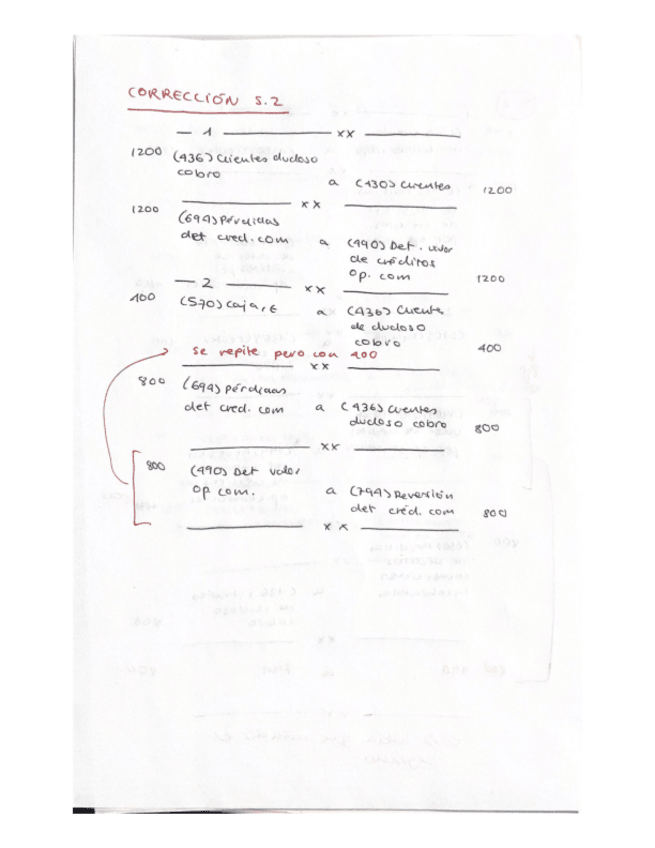 CORRECCIÓN 5.2
— 1 ——— xx ———
1200 (436) Clientes dudoso
cobro
a (430) Clientes 1200
xx
1200 (694) Pérdidas
det cred. com a (490) Det. valor
de créditos
op. com 1200
— 2 ——— xx ———
400 (570) Caja, € a (436) Clientes
de dudoso
cobro 400
se repite pero con 400
xx
800 (694) Pérdidas
det cred. com a (436) Clientes
dudoso cobro 800
xx
800 (490) Det valor
op com. a (794) Reversión
det créd. com 800
xx